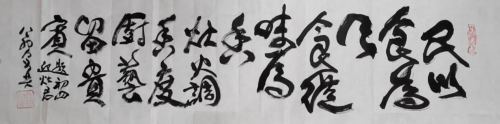 民以
食為
天
食從
味為
香
灶火調
香度
廚藝
留貴
賓